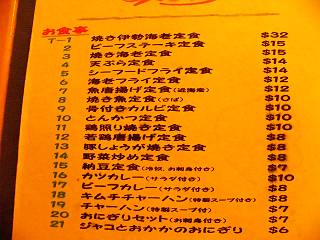 お食事
T-1 焼き伊勢海老定食 $32
2 ビーフステーキ定食 $15
3 焼き海老定食 $15
4 天ぷら定食 $14
5 シーフードフライ定食 $14
6 海老フライ定食 $12
7 魚唐揚げ定食(近海産) $12
8 焼き魚定食(さば) $10
9 骨付きカルビ定食 $10
10 とんかつ定食 $10
11 鶏照り焼き定食 $10
12 若鶏唐揚げ定食 $8
13 豚しょうが焼き定食 $8
14 野菜炒め定食 $8
15 納豆定食(冷奴、お刺身付き) $7
16 カツカレー(サラダ付き) $10
17 ビーフカレー(サラダ付き) $8
18 キムチチャーハン(特製スープ付き) $8
19 チャーハン(特製スープ付) $7
20 おにぎりセット(お刺身付き) $7
21 ジャコとおかかのおにぎり $6